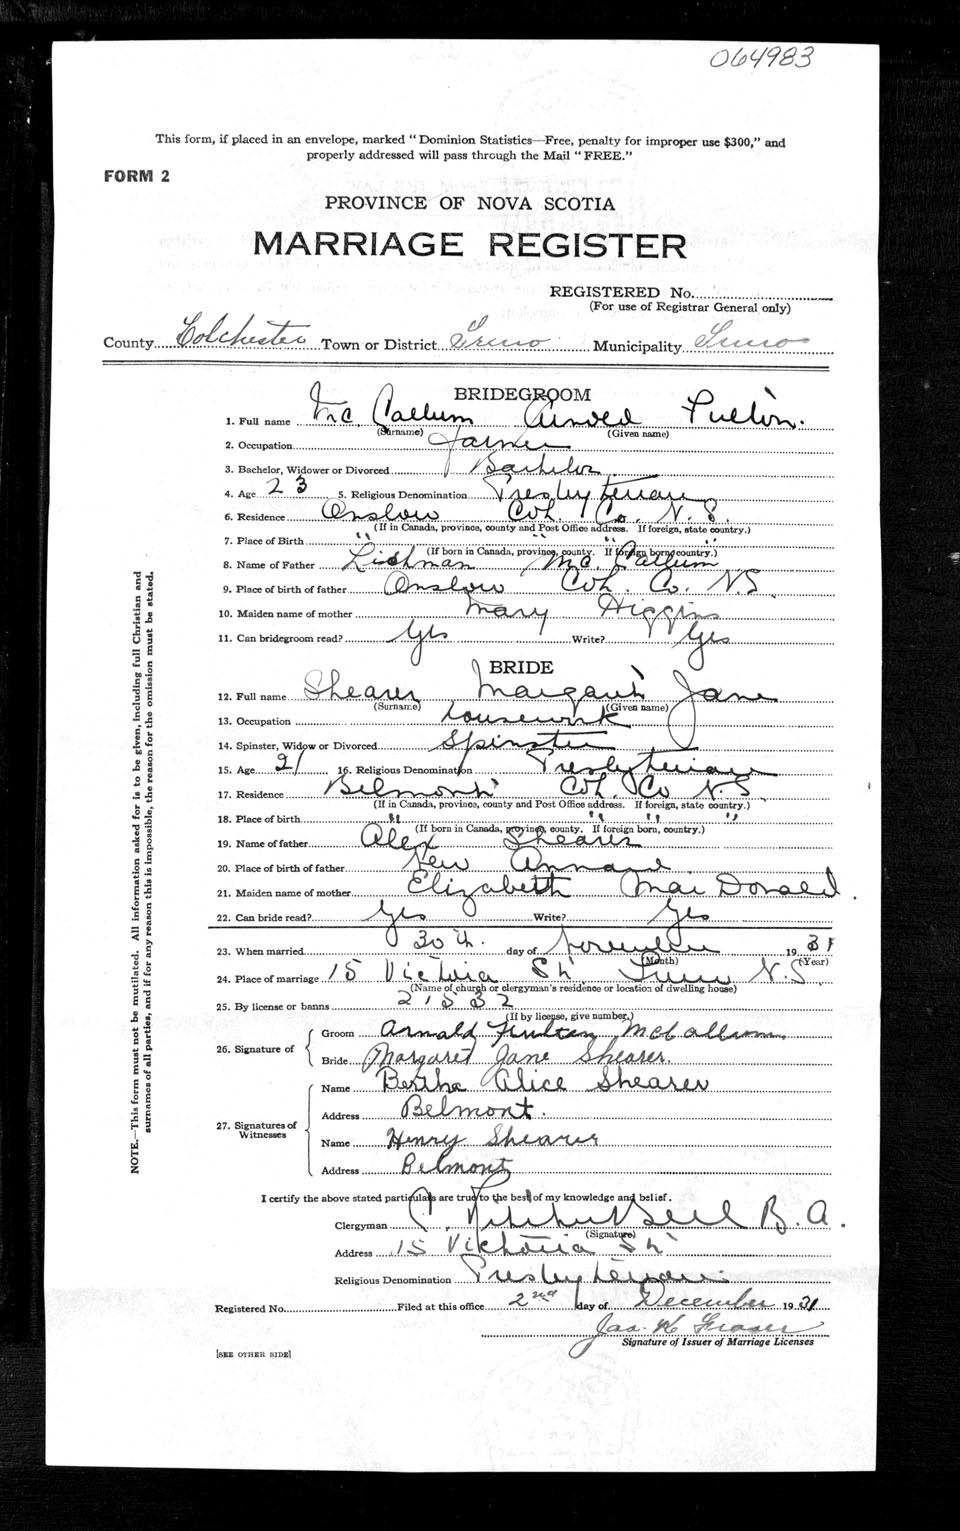 064983
This form, if placed in an envelope, marked "Dominion Statistics—Free, penalty for improper use $300," and
properly addressed will pass through the Mail "FREE."
FORM 2
PROVINCE OF NOVA SCOTIA
MARRIAGE REGISTER
REGISTERED No.
(For use of Registrar General only)
County Colchester Town or District Truro Municipality Truro
BRIDEGROOM
1. Full name Mc Callum Arnold Fulton.
(Surname) (Given name)
2. Occupation Farmer
3. Bachelor, Widower or Divorced Bachelor
4. Age 23 5. Religious Denomination Presbyterian
6. Residence Onslow Col. Co. N.S.
(If in Canada, province, county and Post Office address. If foreign, state country.)
7. Place of Birth " " " "
(If born in Canada, province, county. If foreign born, country.)
8. Name of Father Mc. Callum
9. Place of birth of father Onslow Col. Co. N.S
10. Maiden name of mother Mary Higgins
11. Can bridegroom read? Yes Write? Yes
BRIDE
12. Full name Shearer Margaret Jane
(Surname) (Given name)
13. Occupation housework
14. Spinster, Widow or Divorced Spinster
15. Age 21 16. Religious Denomination Presbyterian
17. Residence Belmont Col. Co N.S
(If in Canada, province, county and Post Office address. If foreign, state country.)
18. Place of birth " " " "
(If born in Canada, province, county. If foreign born, country.)
19. Name of father Alex Shearer
20. Place of birth of father New Annan.
21. Maiden name of mother Elizabeth MacDonald.
22. Can bride read? Yes Write? Yes
23. When married 30th. day of November 1931
(Month) (Year)
24. Place of marriage 15 Victoria St Truro N.S
(Name of church or clergyman's residence or location of dwelling house)
25. By license or banns 21532
(If by license, give number.)
26. Signature of
Groom Arnold Fulton McCallum
Bride Margaret Jane Shearer.
27. Signatures of Witnesses
Name Bertha Alice Shearer
Address Belmont.
Name Henry Shearer
Address Belmont
I certify the above stated particulars are true to the best of my knowledge and belief.
Clergyman B.A.
(Signature)
Address 15 Victoria St
Religious Denomination Presbyterian
Registered No. Filed at this office 2nd day of December 1931
Jas. K Fraser
Signature of Issuer of Marriage Licenses
[SEE OTHER SIDE]
NOTE.—This form must not be mutilated. All information asked for is to be given, including full Christian and
surnames of all parties, and if for any reason this is impossible, the reason for the omission must be stated.